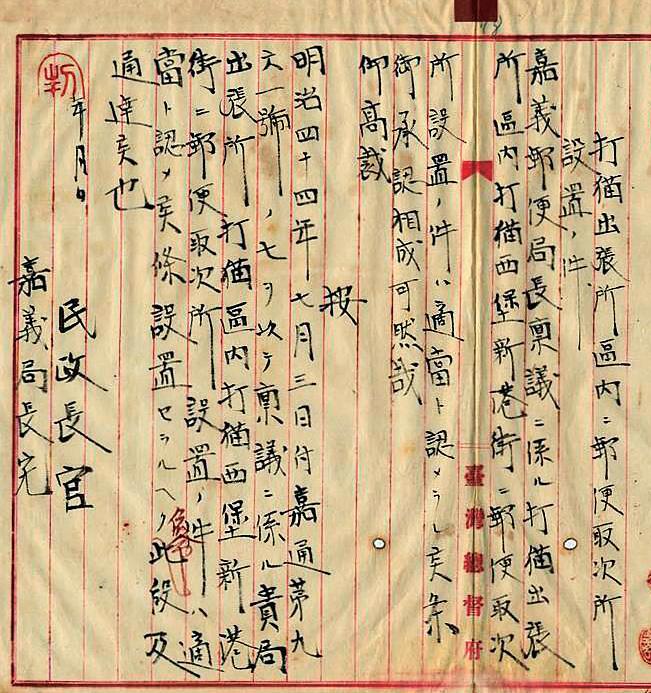 打猫出張所區内ニ郵便取次所
設置ノ件
嘉義郵便局長稟議ニ係ル打猫出張
所區内打猫西堡新港街ニ郵便取次
臺灣總督府
所設置ノ件ハ適當ト認メラレ候条
御承認相成可然哉
仰高裁
按
明治四十四年七月三日付嘉通第九
六一號ノ七ヲ以テ稟議ニ係ル貴局
出張所打猫區内打猫西堡新港
街ニ郵便取次所設置ノ件ハ適
當ト認メ候條設置セラルヘク此段及
通達候也
年月日
民政長官
嘉義局長宛